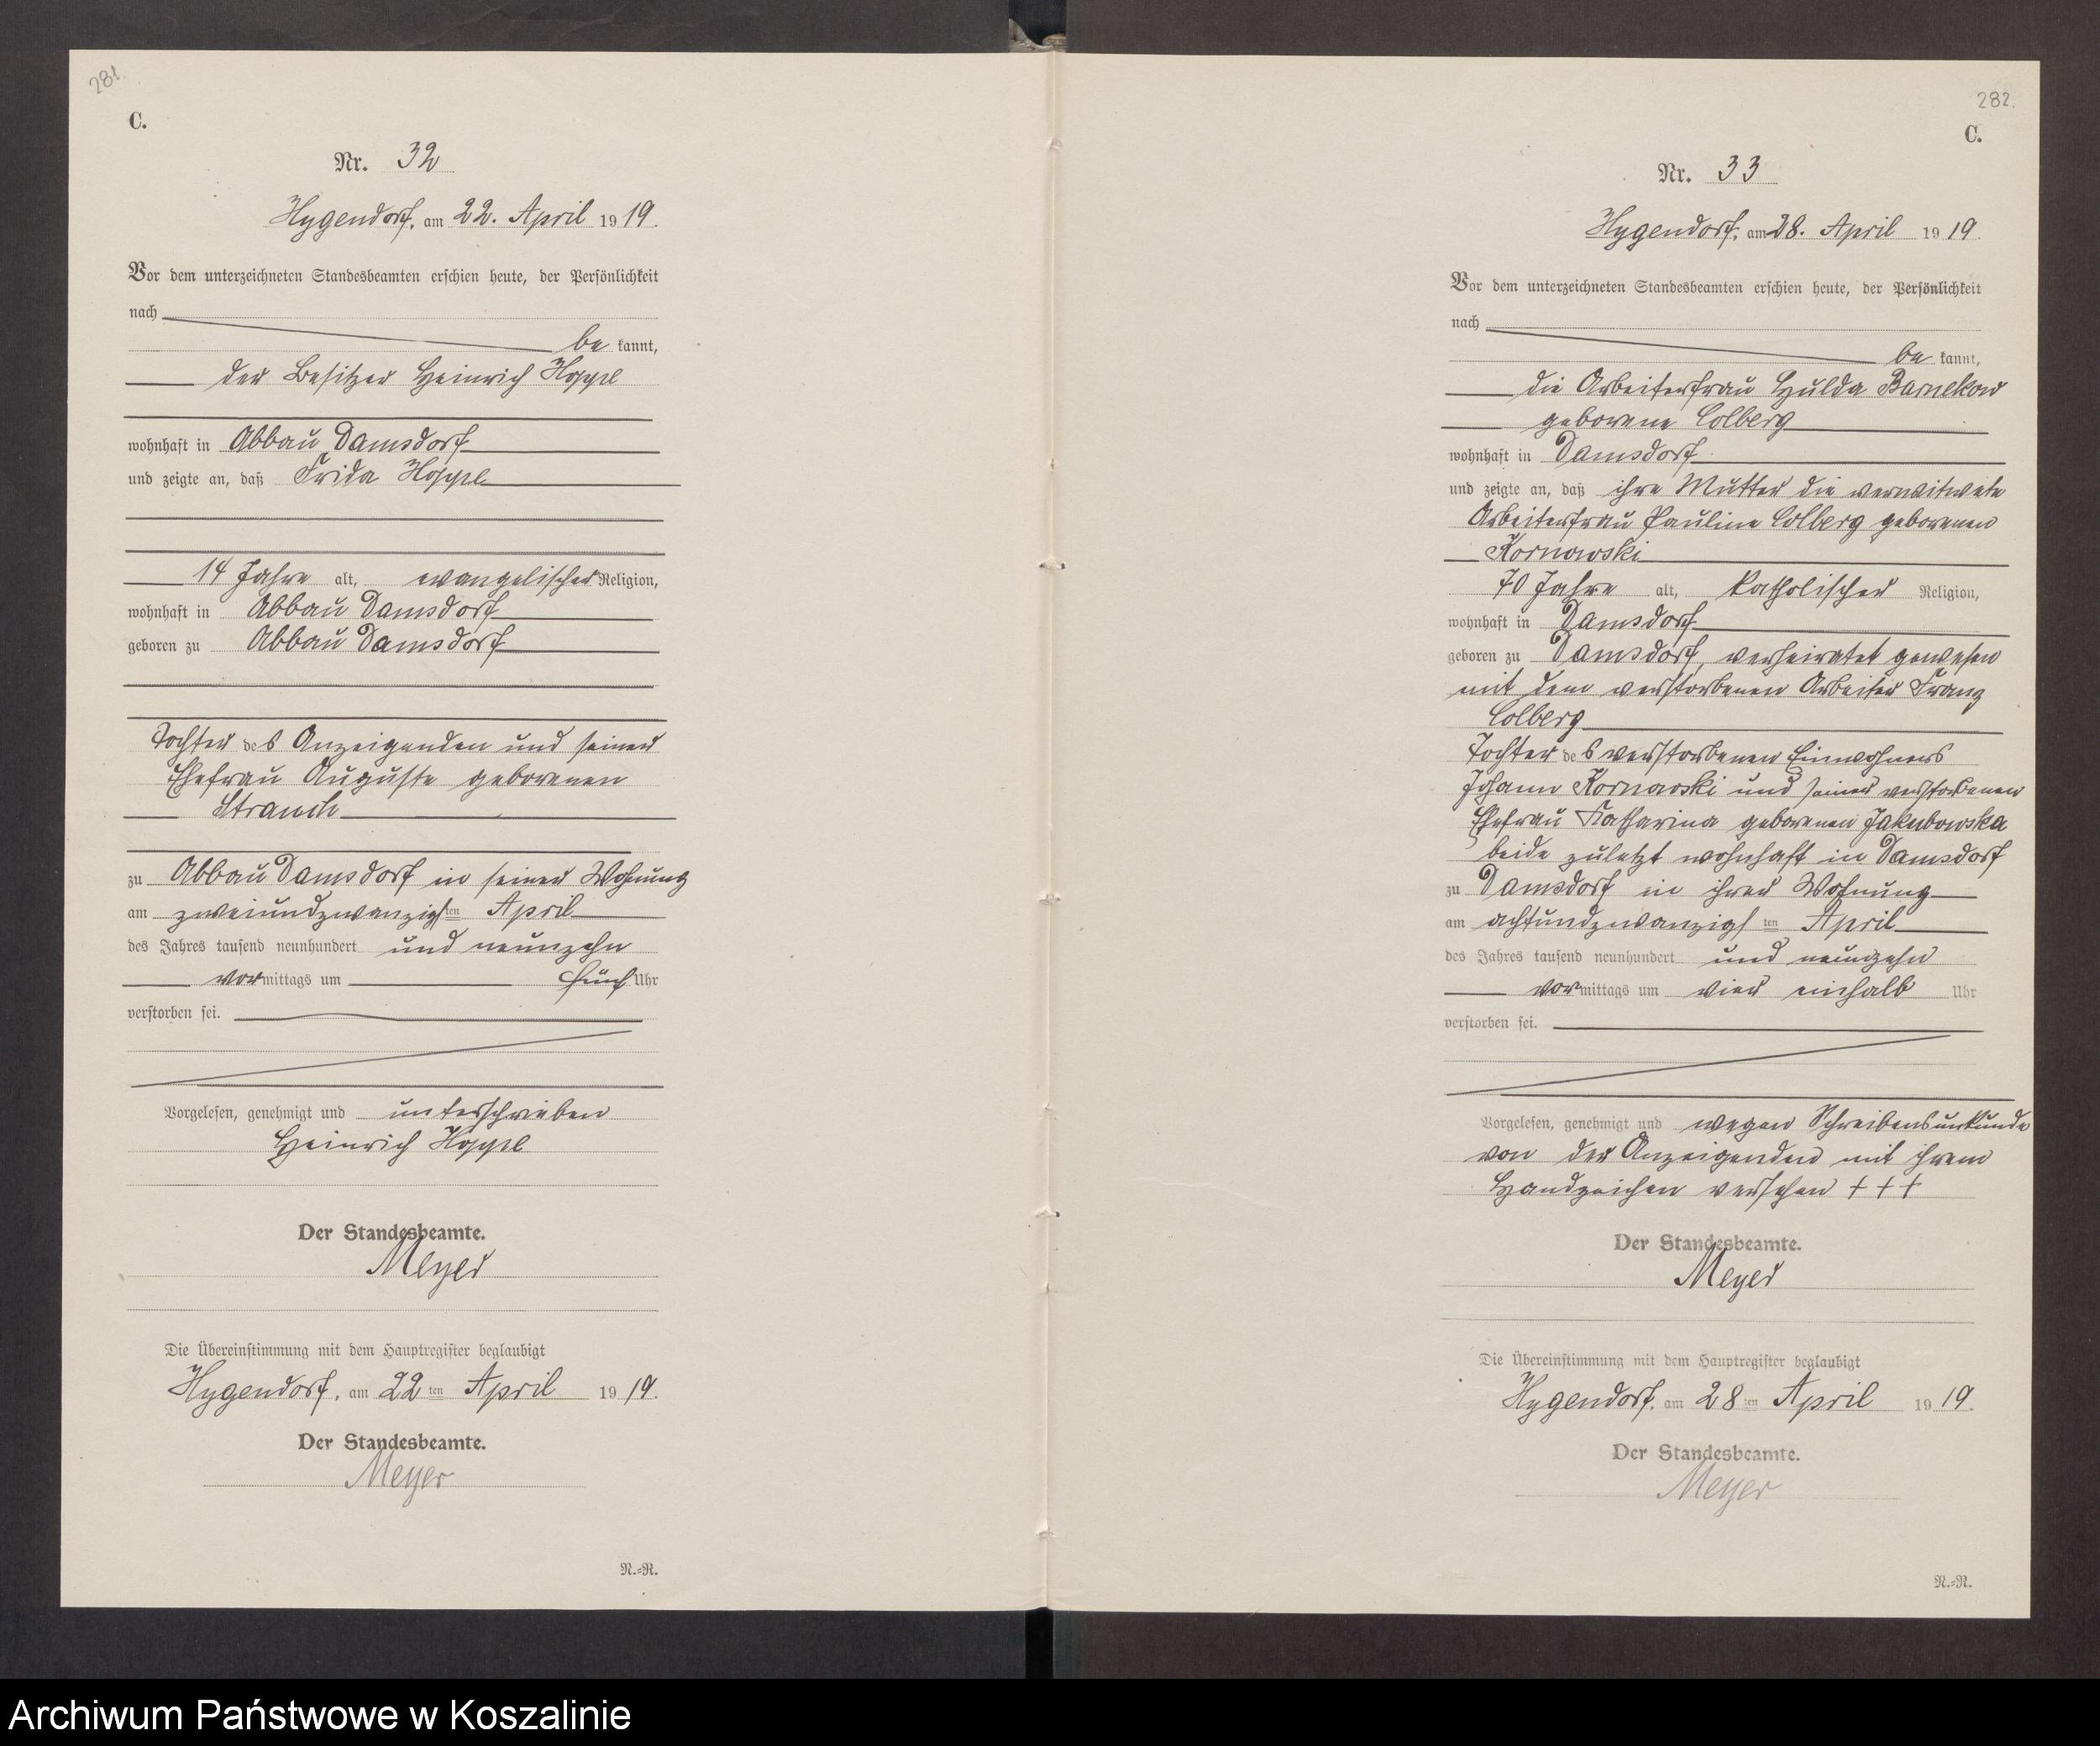 281.
C.
Nr. 32
Hygendorf, am 22. April 1919.
Vor dem unterzeichneten Standesbeamten erschien heute, der Persönlichkeit
nach
be kannt,
der Besitzer Heinrich Hoppe
wohnhaft in Abbau Damsdorf
und zeigte an, daß Frida Hoppe
14 Jahre alt, evangelischer Religion,
wohnhaft in Abbau Damsdorf
geboren zu Abbau Damsdorf
Tochter des Anzeigenden und seiner
Ehefrau Auguste geborenen
zu Abbau Damsdorf in seiner Wohnung
am zweiundzwanzigsten April
des Jahres tausend neunhundert und neunzehn
vormittags um fünf Uhr
verstorben sei.
Vorgelesen, genehmigt und unterschrieben
Heinrich Hoppe
Der Standesbeamte.
Meyer
Die Übereinstimmung mit dem Hauptregister beglaubigt
Hygendorf, am 22ten April 1919.
Der Standesbeamte.
Meyer
N.=R.
282.
C.
Nr. 33
Hygendorf, am 28. April 1919.
Vor dem unterzeichneten Standesbeamten erschien heute, der Persönlichkeit
nach
be kannt,
die Arbeiterfrau Hulda Barnekow
geborene Colberg
wohnhaft in Damsdorf
und zeigte an, daß ihre Mutter die verwitwete
Arbeiterfrau Pauline Colberg geborenen
Kornowski
70 Jahre alt, katholischer Religion,
wohnhaft in Damsdorf
geboren zu Damsdorf, verheiratet gewesen
mit dem verstorbenen Arbeiter Franz
Colberg
Tochter des verstorbenen Einwohners
Johann Kornowski und seiner verstorbenen
Ehefrau Katharina geborenen Jakubowska
beide zuletzt wohnhaft in Damsdorf
zu Damsdorf in ihrer Wohnung
am achtundzwanzigsten April
des Jahres tausend neunhundert und neunzehn
vormittags um vier einhalb Uhr
verstorben sei.
Vorgelesen, genehmigt und wegen Schreibensunkunde
von der Anzeigenden mit ihrem
Handzeichen versehen + + +
Der Standesbeamte.
Meyer
Die Übereinstimmung mit dem Hauptregister beglaubigt
Hygendorf, am 28ten April 1919.
Der Standesbeamte.
Meyer
N.=R.
Archiwum Państwowe w Koszalinie